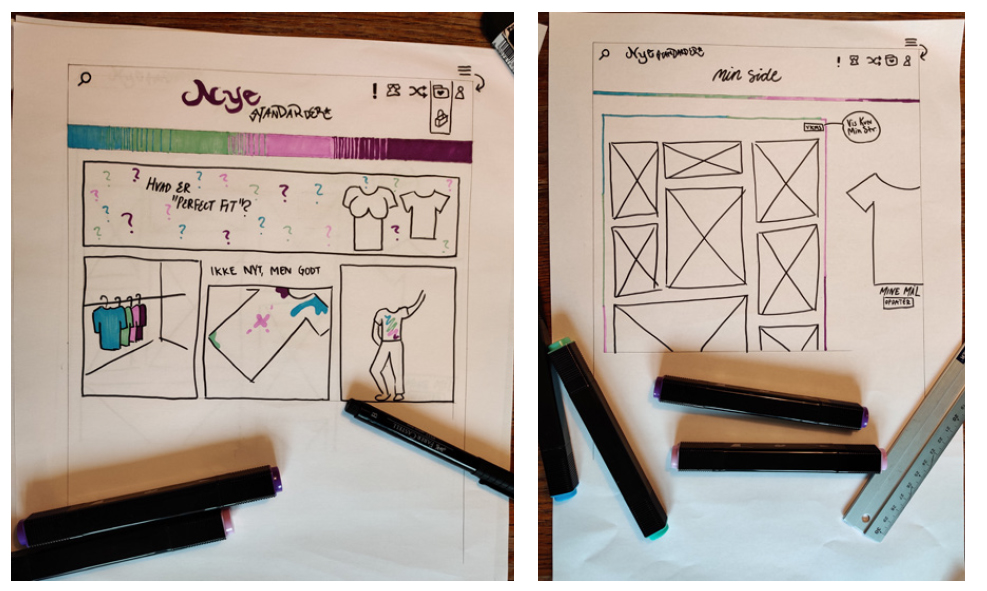 Nye
STANDARDERE
HVAD ER
"PERFECT FIT"?
IKKE NYT, MEN GODT
Nye STANDARDERE
min side
Vis Kun
Min Str
MINE MÅL